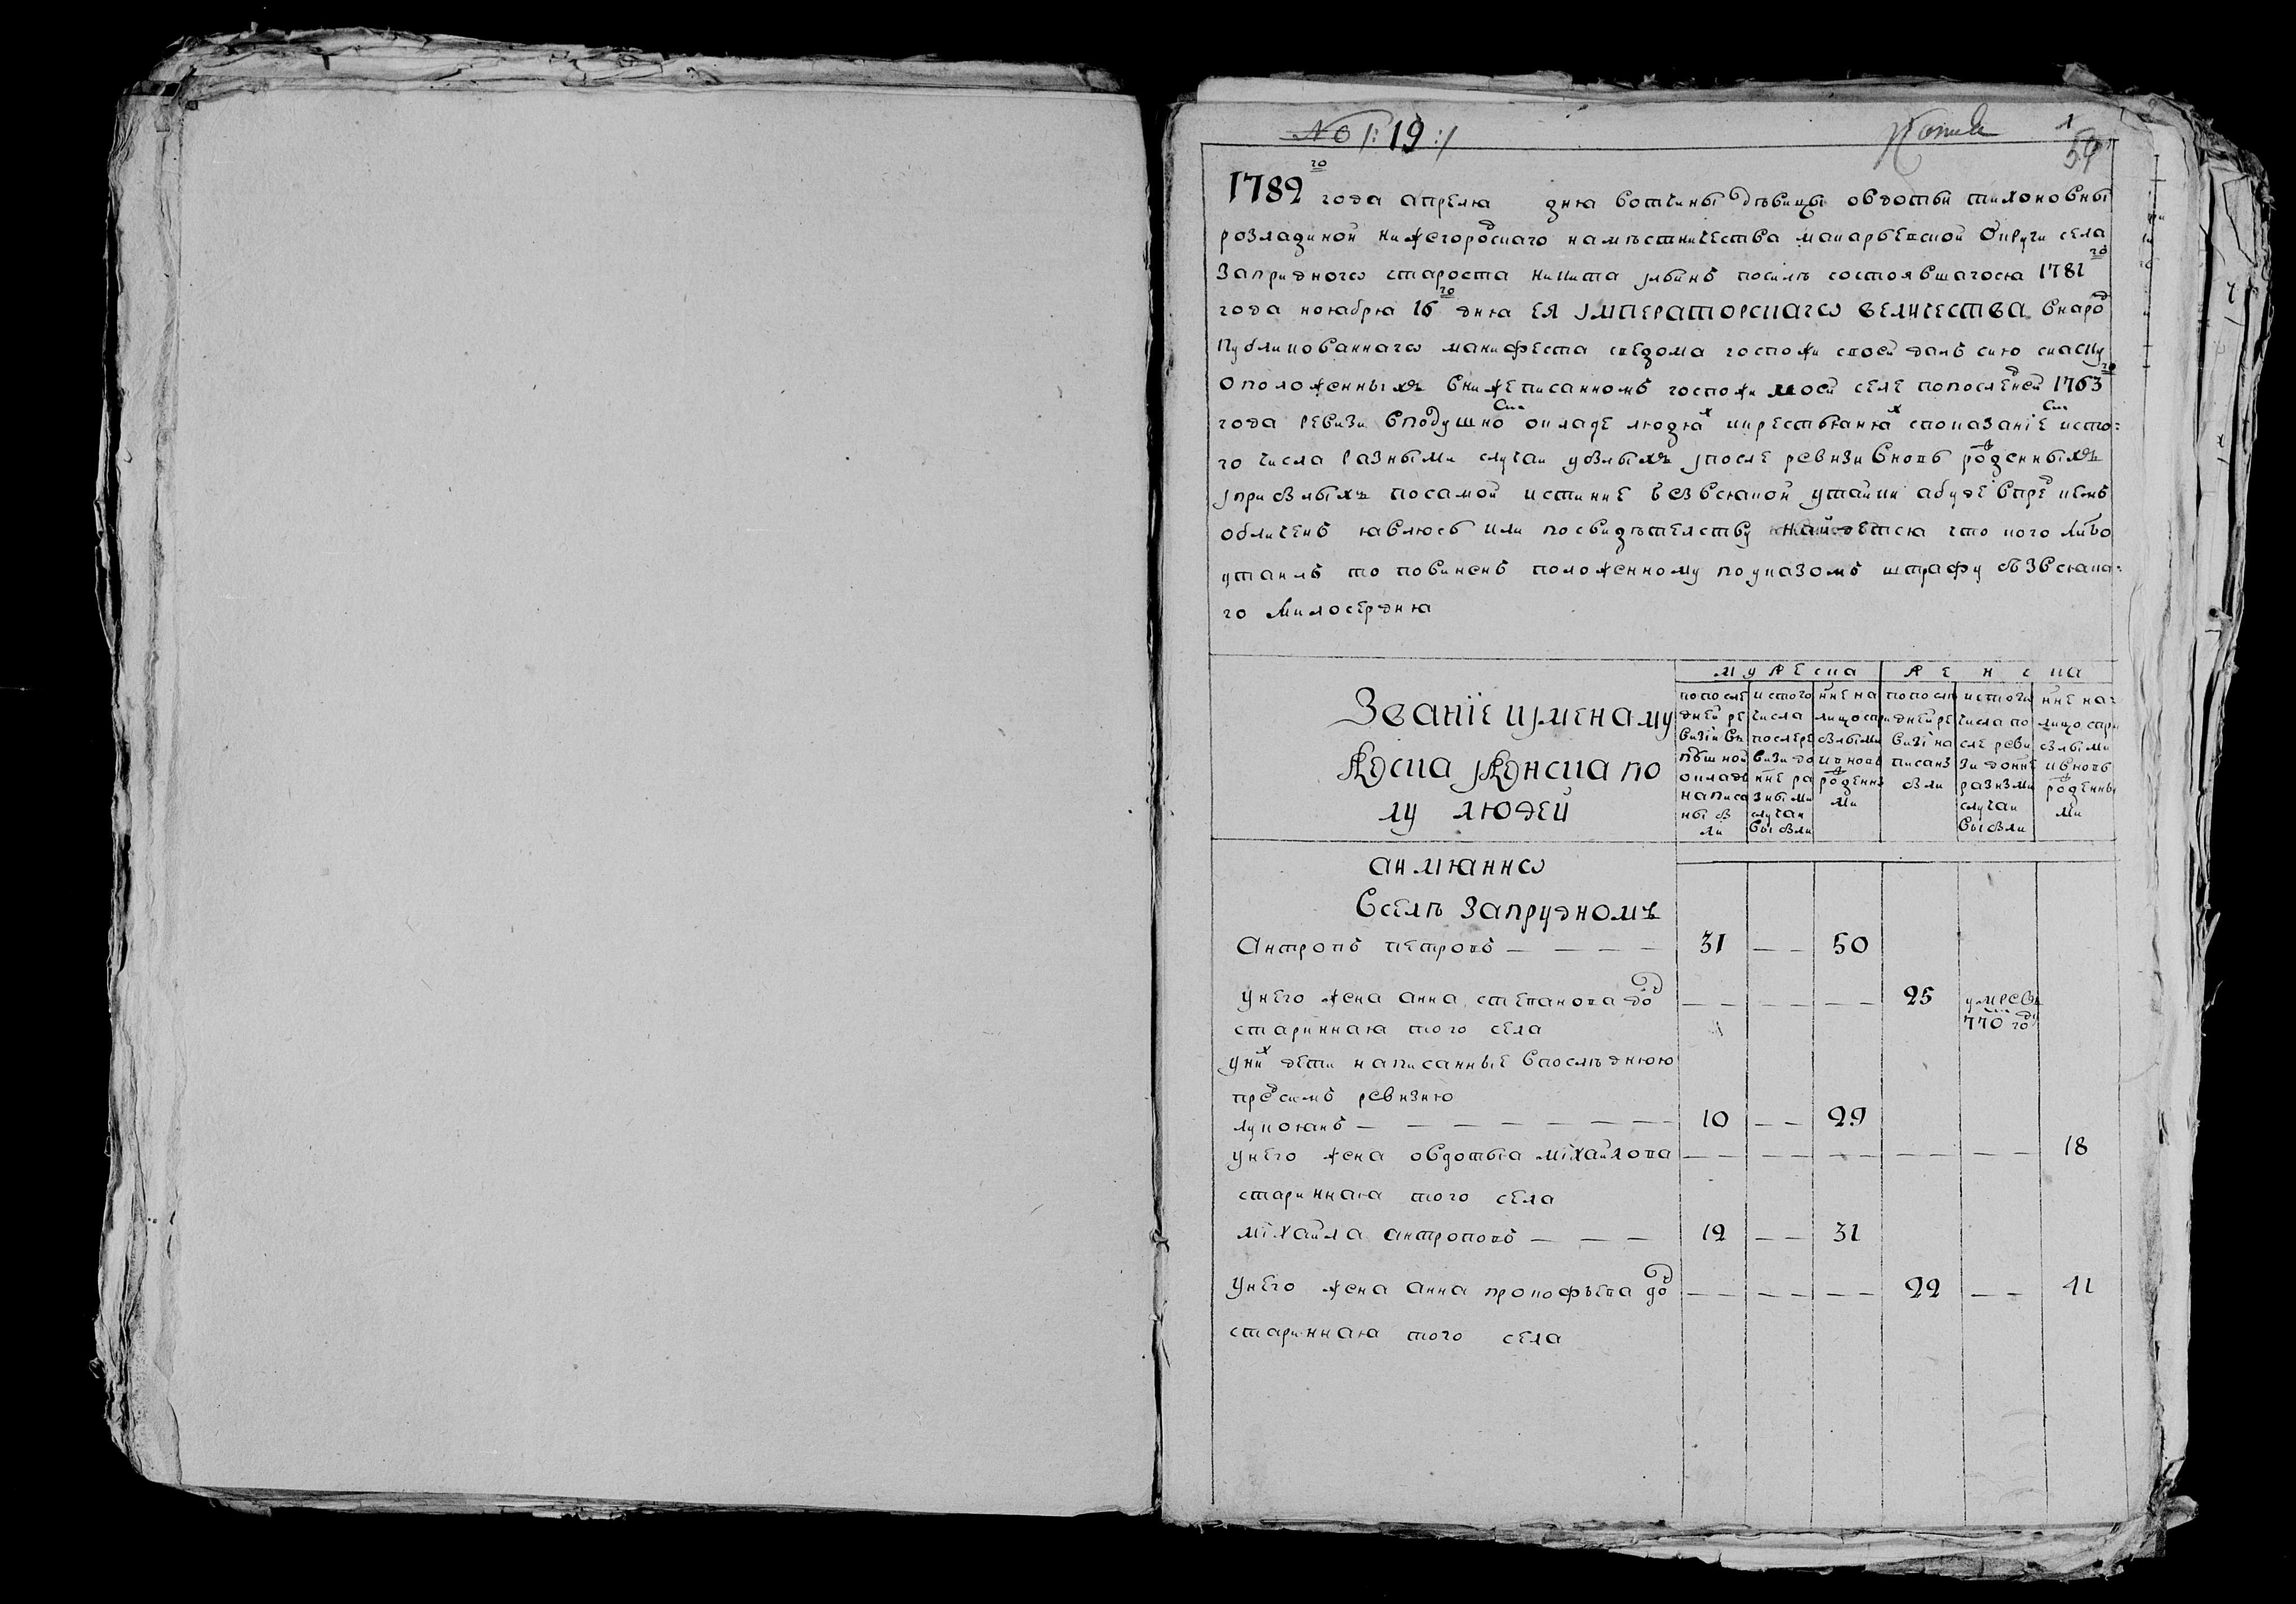 № /: 19 :/ Копия 1
59
1782го года апреля дня вотчины девицы овдотьи тихоновны
розладиной нижегородскаго наместничества макарьевской округи села
Запрудного староста никита ильинъ посилъ состоявшагося 1781го
года ноября 16го дня ея императорскаго величества внарод
публикованнаго манифеста сведома госпожи своей далъ сию скаску
ополоѫенныхъ внижеписанномъ госпожи моей селе попоследней 1763го
года ревизи вподушно окладе людях икрестьянах споказание исто=
го числа разными случаи убылыхъ ипосле ревизи вновь рожденныхъ
иприбылыхъ посамой истинне безвсякой утайки абуде впред кемъ
обличенъ явлюсь или посвидетелству найдется что кого либо
утаилъ то повиненъ положенному поуказомъ штрафу безвсяка=
го милосердия
мужеска женска
Звание именаму
жеска иженска по
лу людей
попосле
дней ре
визии в
пдшной
окладъ
написа
ны бы
ли
истого
числа
послере
визи до
нне ра
зными
случаи
выбыли
нне на
лицо спри
былыми
ивновь
рожденны
ми
попосле
дней ре
визи на
писан
были
истого
числа по
сле реви
зи донне
разными
случаи
выбыли
нне на=
лицо спри
былыми
ивновь
рожденны
ми
аимянно
Вселе Запрудномъ
Антропъ петровъ — — — — 31 — — 50
унего жена анна степанова до — — — — — — 25 умре въ
старинная того села 770 год
уних дети написанные впоследнюю
пред симъ ревизию
лукоянъ — — — — — — — 10 — — 29
унего жена овдотья міхайлова — — — — — — — — — — 18
старинная того села
міхайла антроповъ — — — 12 — — 31
унего жена анна прокофьева до — — — — — — 22 — — 41
старинная того села